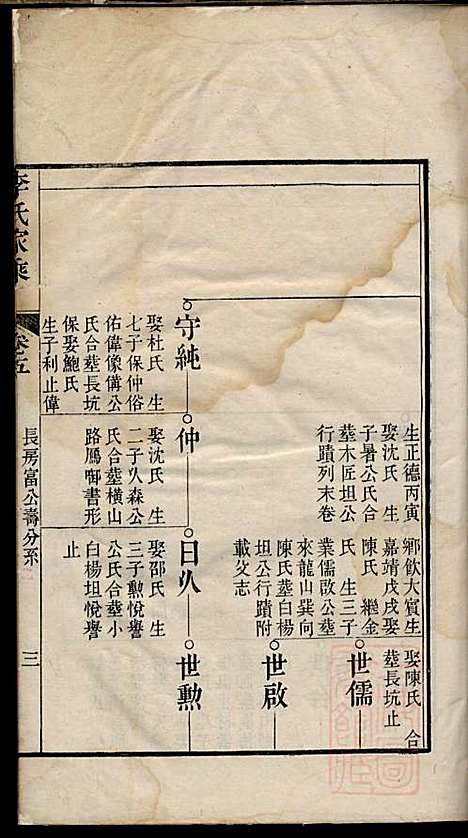 生正德丙寅
娶沈氏 生
子暑公氏合
塟木匠坦公
行蹟列末卷
鄉飲大賓生
嘉靖戊戌娶
陳氏 繼金
氏 生三子
業儒啟公塟
來龍山巽向
陳氏塟白楊
坦公行蹟附
載文志
娶陳氏 合
塟長坑止
世儒
世啟
守純
娶杜氏 生
七子保仲俗
佑偉像備公
氏合塟長坑
保娶鮑氏
生子利止偉
仲
娶沈氏 生
二子乆森公
氏合塟橫山
路鴈啣書形
日乆
娶邵氏 生
三子勲悅譽
公氏合塟小
白楊坦悅譽
止
世勲
李氏家乘
卷五
長房富公壽分系
三